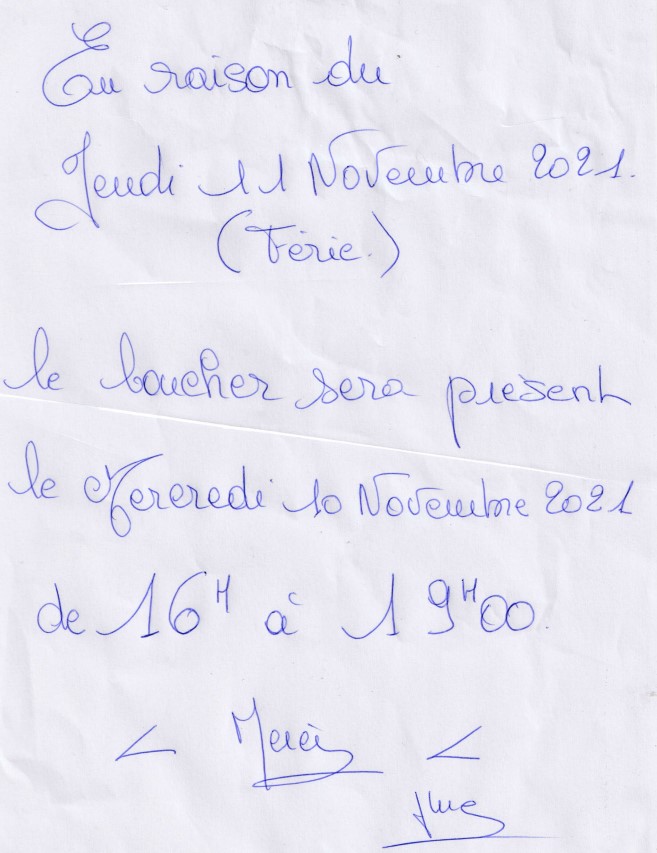 En raison du
Jeudi 11 Novembre 2021.
(Férié.)
le boucher sera présent
le Mercredi 10 Novembre 2021
de 16H à 19H00.
Merci